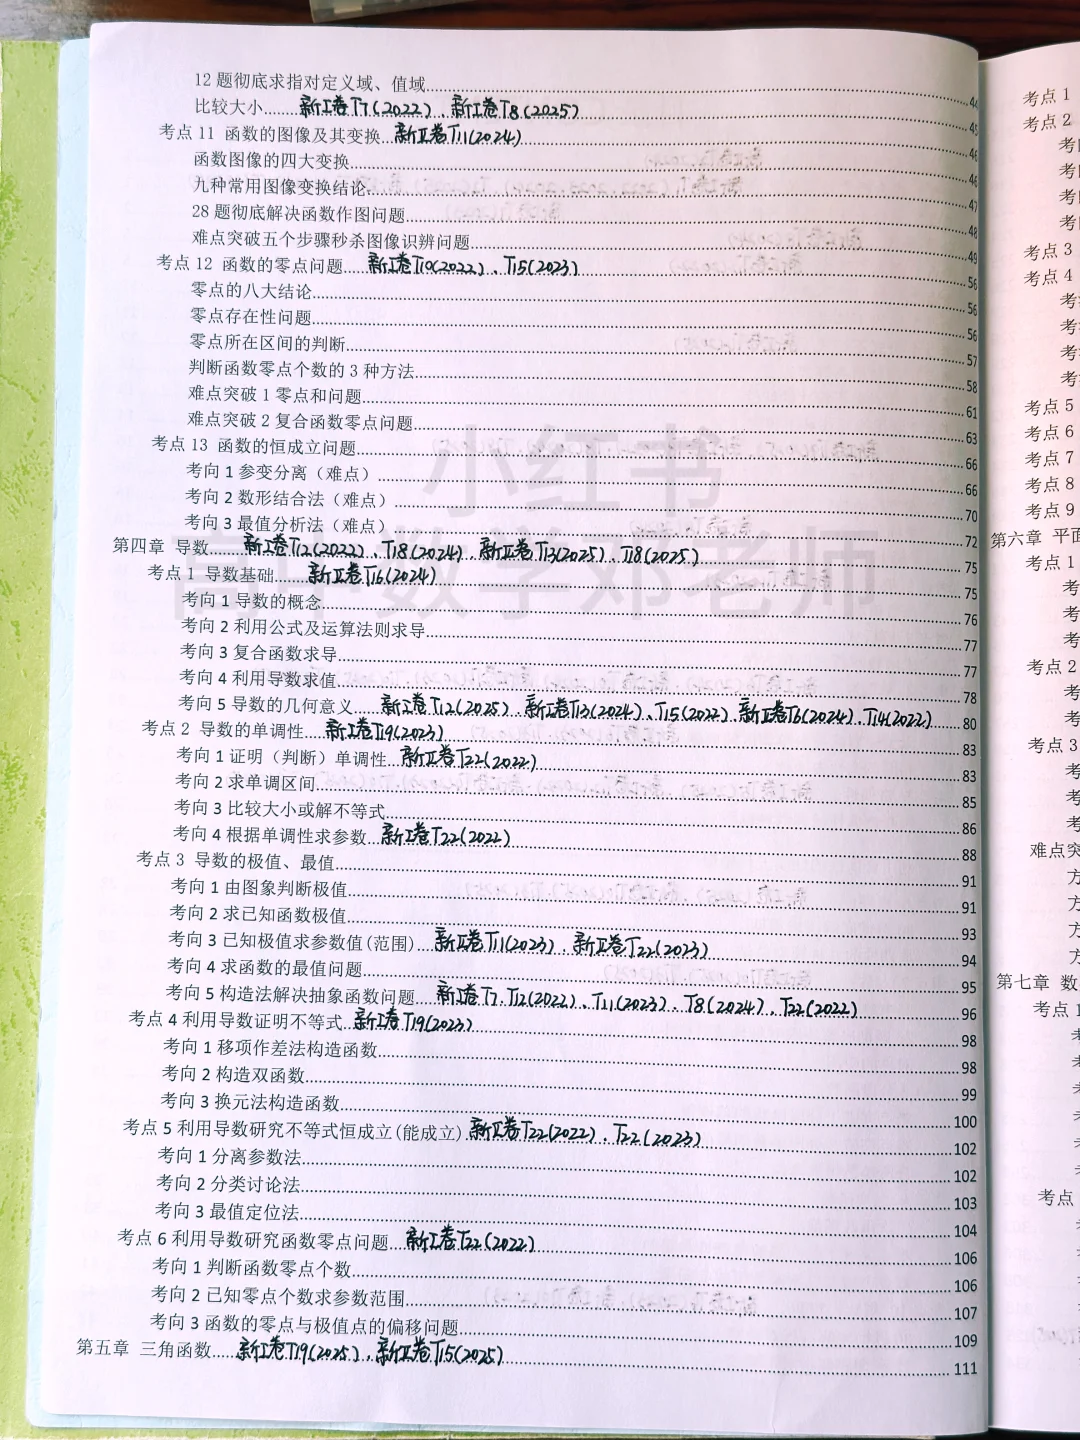 12 题彻底求指对定义域、值域 44
比较大小 新I卷T7(2022)、新I卷T8(2025) 45
考点 11 函数的图像及其变换 新II卷T11(2024) 46
函数图像的四大变换 46
九种常用图像变换结论 47
28 题彻底解决函数作图问题 48
难点突破五个步骤秒杀图像识辨问题 49
考点 12 函数的零点问题 新I卷T10(2022)、T15(2023) 56
零点的八大结论 56
零点存在性问题 56
零点所在区间的判断 57
判断函数零点个数的 3 种方法 58
难点突破 1 零点和问题 61
难点突破 2 复合函数零点问题 63
考点 13 函数的恒成立问题 66
考向 1 参变分离（难点） 66
考向 2 数形结合法（难点） 70
考向 3 最值分析法（难点） 72
第四章 导数 新I卷T12(2022)、T18(2024)、新II卷T13(2025)、T18(2025) 75
考点 1 导数基础 新II卷T16(2024) 75
考向 1 导数的概念 76
考向 2 利用公式及运算法则求导 77
考向 3 复合函数求导 77
考向 4 利用导数求值 78
考向 5 导数的几何意义 新I卷T12(2025)、新I卷T13(2024)、T15(2022)、新II卷T6(2024)、T14(2022) 80
考点 2 导数的单调性 新I卷T19(2023) 83
考向 1 证明（判断）单调性 新II卷T22(2022) 83
考向 2 求单调区间 85
考向 3 比较大小或解不等式 86
考向 4 根据单调性求参数 新I卷T22(2022) 88
考点 3 导数的极值、最值 91
考向 1 由图象判断极值 91
考向 2 求已知函数极值 93
考向 3 已知极值求参数值(范围) 新II卷T11(2023)、新II卷T22(2023) 94
考向 4 求函数的最值问题 95
考向 5 构造法解决抽象函数问题 新I卷T7、T12(2022)、T11(2023)、T8(2024)、T22(2022) 96
考点 4 利用导数证明不等式 新I卷T19(2023) 98
考向 1 移项作差法构造函数 98
考向 2 构造双函数 99
考向 3 换元法构造函数 100
考点 5 利用导数研究不等式恒成立(能成立) 新II卷T22(2022)、T22(2023) 102
考向 1 分离参数法 102
考向 2 分类讨论法 103
考向 3 最值定位法 104
考点 6 利用导数研究函数零点问题 新I卷T22(2022) 106
考向 1 判断函数零点个数 106
考向 2 已知零点个数求参数范围 107
考向 3 函数的零点与极值点的偏移问题 109
第五章 三角函数 新I卷T19(2025)、新II卷T15(2025) 111
小红书
高中数学邓老师
考点 1
考点 2
考点 3
考点 4
考点 5
考点 6
考点 7
考点 8
考点 9
第六章 平面
考点 1
考点 2
考点 3
难点突
第七章 数
考点 1
考点